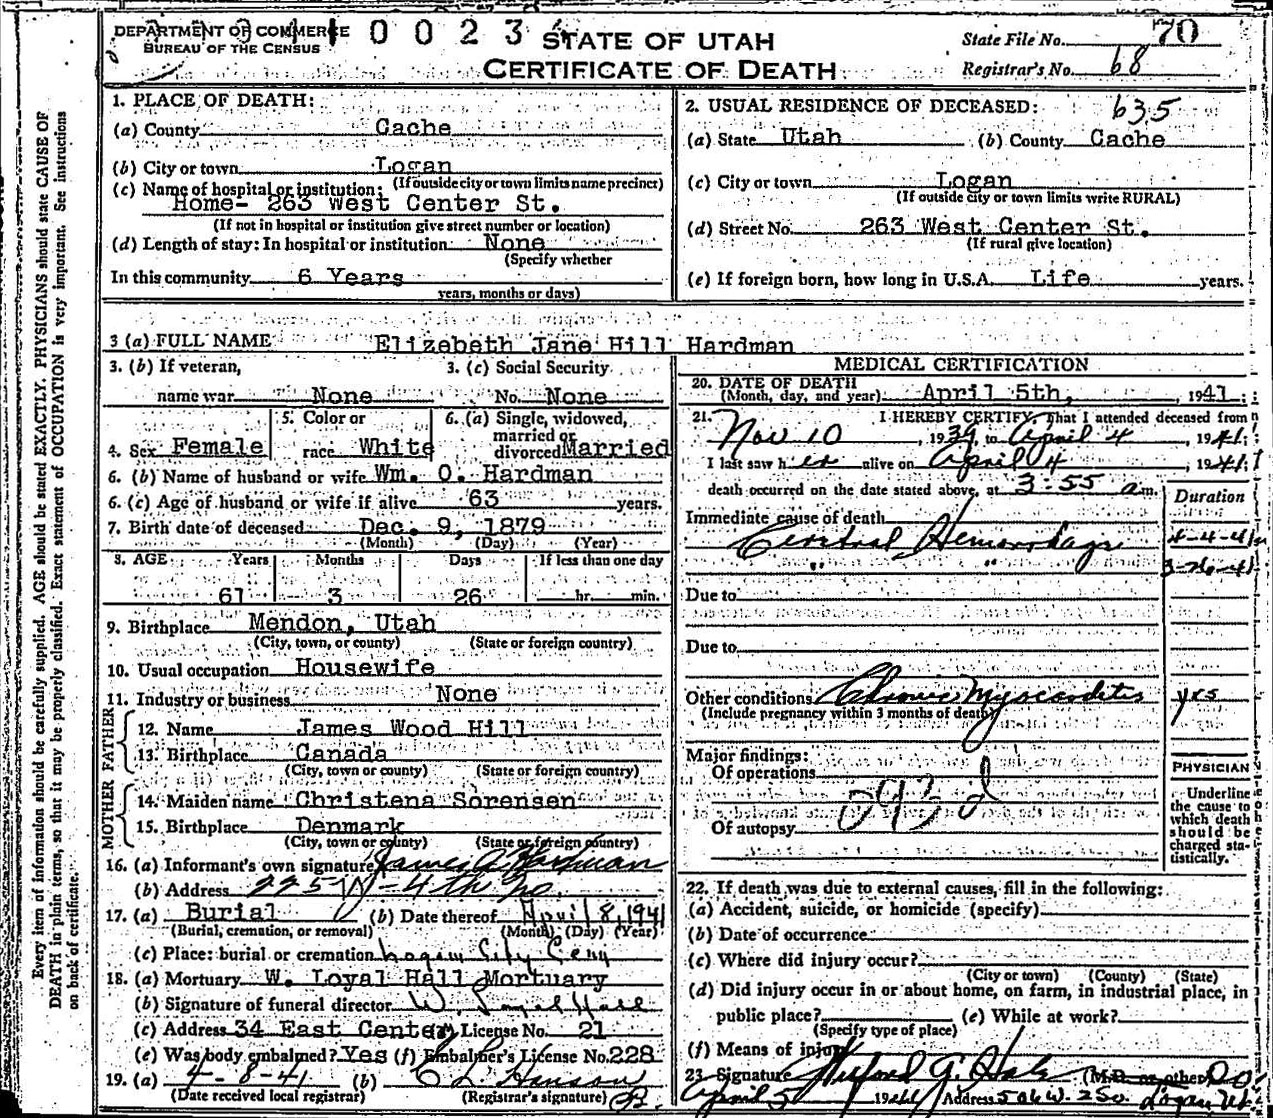 DEPARTMENT OF COMMERCE
BUREAU OF THE CENSUS
0 0 2 3
STATE OF UTAH
CERTIFICATE OF DEATH
State File No. 70
Registrar's No. 68
1. PLACE OF DEATH:
(a) County Cache
(b) City or town Logan
(If outside city or town limits name precinct)
(c) Name of hospital or institution:
Home- 263 West Center St.
(If not in hospital or institution give street number or location)
(d) Length of stay: In hospital or institution None
(Specify whether
In this community 6 Years
years, months or days)
2. USUAL RESIDENCE OF DECEASED: 635
(a) State Utah (b) County Cache
(c) City or town Logan
(If outside city or town limits write RURAL)
(d) Street No. 263 West Center St.
(If rural give location)
(e) If foreign born, how long in U.S.A. Life years.
3 (a) FULL NAME Elizebeth Jane Hill Hardman
3. (b) If veteran, name war None
3. (c) Social Security No. None
4. Sex Female
5. Color or race White
6. (a) Single, widowed, married or divorced Married
6. (b) Name of husband or wife Wm. O. Hardman
6. (c) Age of husband or wife if alive 63 years.
7. Birth date of deceased Dec. 9, 1879
(Month) (Day) (Year)
8. AGE Years Months Days If less than one day
61 3 26 hr. min.
9. Birthplace Mendon, Utah
(City, town, or county) (State or foreign country)
10. Usual occupation Housewife
11. Industry or business None
FATHER
12. Name James Wood Hill
13. Birthplace Canada
(City, town or county) (State or foreign country)
MOTHER
14. Maiden name Christena Sorensen
15. Birthplace Denmark
(City, town or county) (State or foreign country)
16. (a) Informant's own signature James A Hardman
(b) Address 225 W - 4th No.
17. (a) Burial (b) Date thereof April 8, 1941
(Burial, cremation, or removal) (Month) (Day) (Year)
(c) Place: burial or cremation Logan City Cem
18. (a) Mortuary W. Loyal Hall Mortuary
(b) Signature of funeral director W. Loyal Hall
(c) Address 34 East Center License No. 21
(e) Was body embalmed? Yes (f) Embalmer's License No. 228
19. (a) 4-8-41 (b) C L Hanson
(Date received local registrar) (Registrar's signature)
MEDICAL CERTIFICATION
20. DATE OF DEATH
(Month, day, and year) April 5th, 1941
21. I HEREBY CERTIFY, That I attended deceased from
Nov 10, 1939, to April 4, 1941
I last saw her alive on April 4, 1941
death occurred on the date stated above, at 3:55 a m.
Duration
Immediate cause of death
Cerebral Hemorrhage 4-4-41
" " 3-26-41
Due to
Due to
Other conditions Chronic Myocarditis yes
(Include pregnancy within 3 months of death)
Major findings:
Of operations
093 d
Of autopsy
PHYSICIAN
Underline
the cause to
which death
should be
charged sta-
tistically.
22. If death was due to external causes, fill in the following:
(a) Accident, suicide, or homicide (specify)
(b) Date of occurrence
(c) Where did injury occur?
(City or town) (County) (State)
(d) Did injury occur in or about home, on farm, in industrial place, in
public place? (e) While at work?
(Specify type of place)
(f) Means of injury
23. Signature G. Hale (M.D. or other) DO
April 5 1941 Address W. 2 So. Logan Ut.
Every item of information should be carefully supplied. AGE should be stated EXACTLY. PHYSICIANS should state CAUSE OF
DEATH in plain terms, so that it may be properly classified. Exact statement of OCCUPATION is very important. See instructions
on back of certificate.